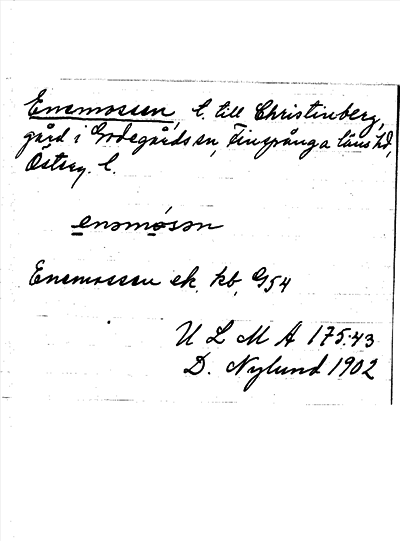 Enemossen, l. till Christinberg,
gård i Godegårds sn, Finspånga läns hd,
Österg. l.
enəmosən
Enemossen ek. kb. G54
U L M A 175:43
D. Nylund 1902